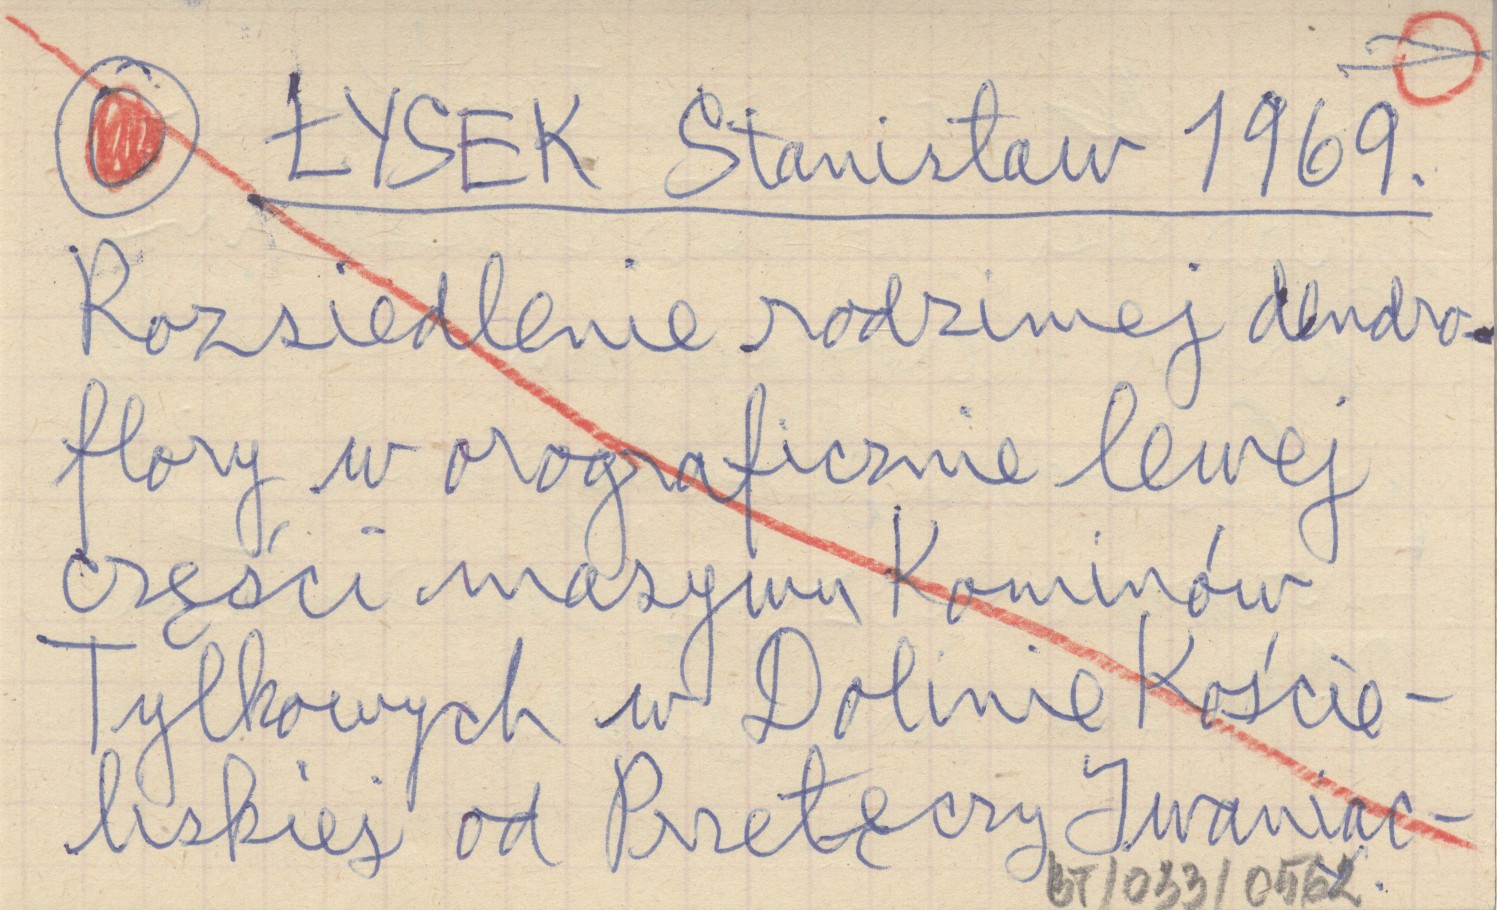 ŁYSEK Stanisław 1969.
Rozsiedlenie rodzimej dendro-
flory w orograficznie lewej
części masywu Kominów
Tylkowych w Dolinie Koście-
liskiej od Przełęczy Iwaniac-
BT/033/0562